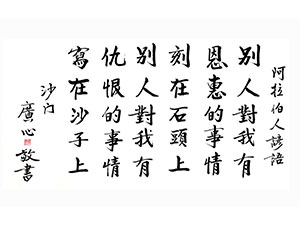 阿拉伯人諺語
別人對我有
恩惠的事情
刻在石頭上
別人對我有
仇恨的事情
寫在沙子上
沙门
廣心
敬書